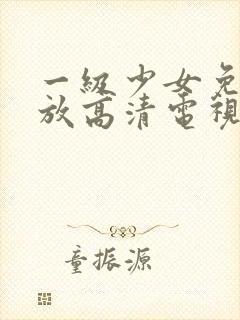 一級少女免
放高清電視
童振源